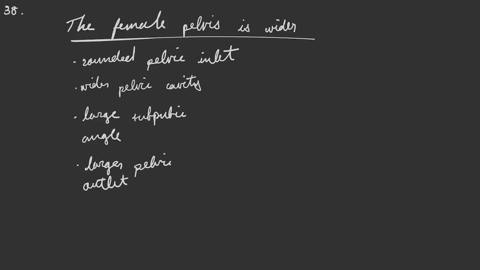 38.
The female pelvis is wider
· rounded pelvic inlet
· wider pelvic cavity
· large subpubic
angle
· larger pelvic
outlet